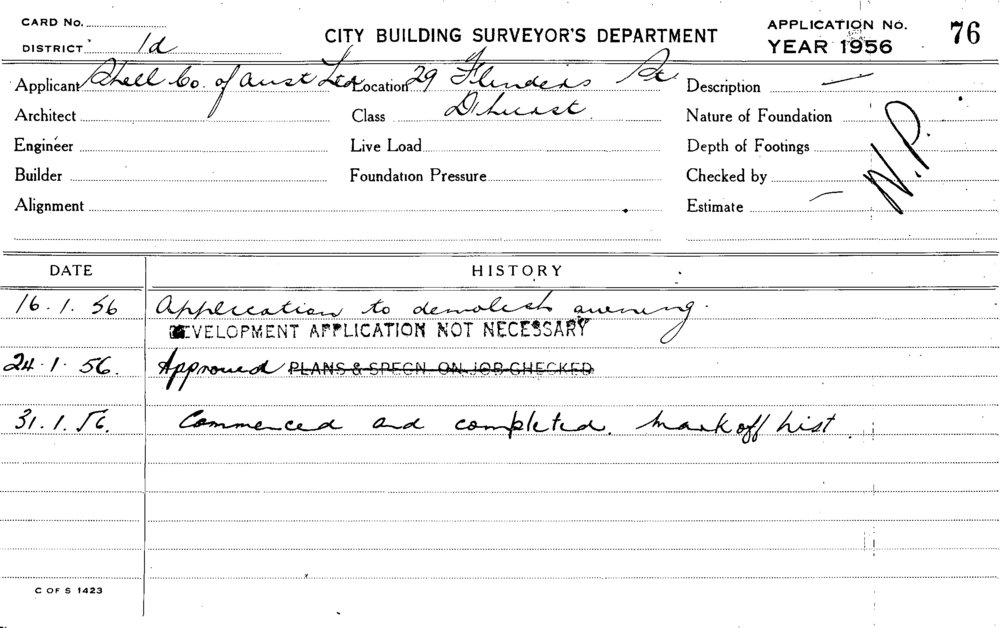 CARD No. APPLICATION No. 76
DISTRICT 1d CITY BUILDING SURVEYOR'S DEPARTMENT YEAR 1956
Applicant Shell Co. of Aust Ltd Location 29 Flinders St. Description —
Architect Class D'hurst. Nature of Foundation
Engineer Live Load Depth of Footings N.P.
Builder Foundation Pressure Checked by
Alignment Estimate —
DATE HISTORY
16.1.56 Application to demolish awning.
DEVELOPMENT APPLICATION NOT NECESSARY
24.1.56. Approved PLANS & SPECN ON JOB CHECKED
31.1.56. Commenced and completed. Mark off list
C OF S 1423